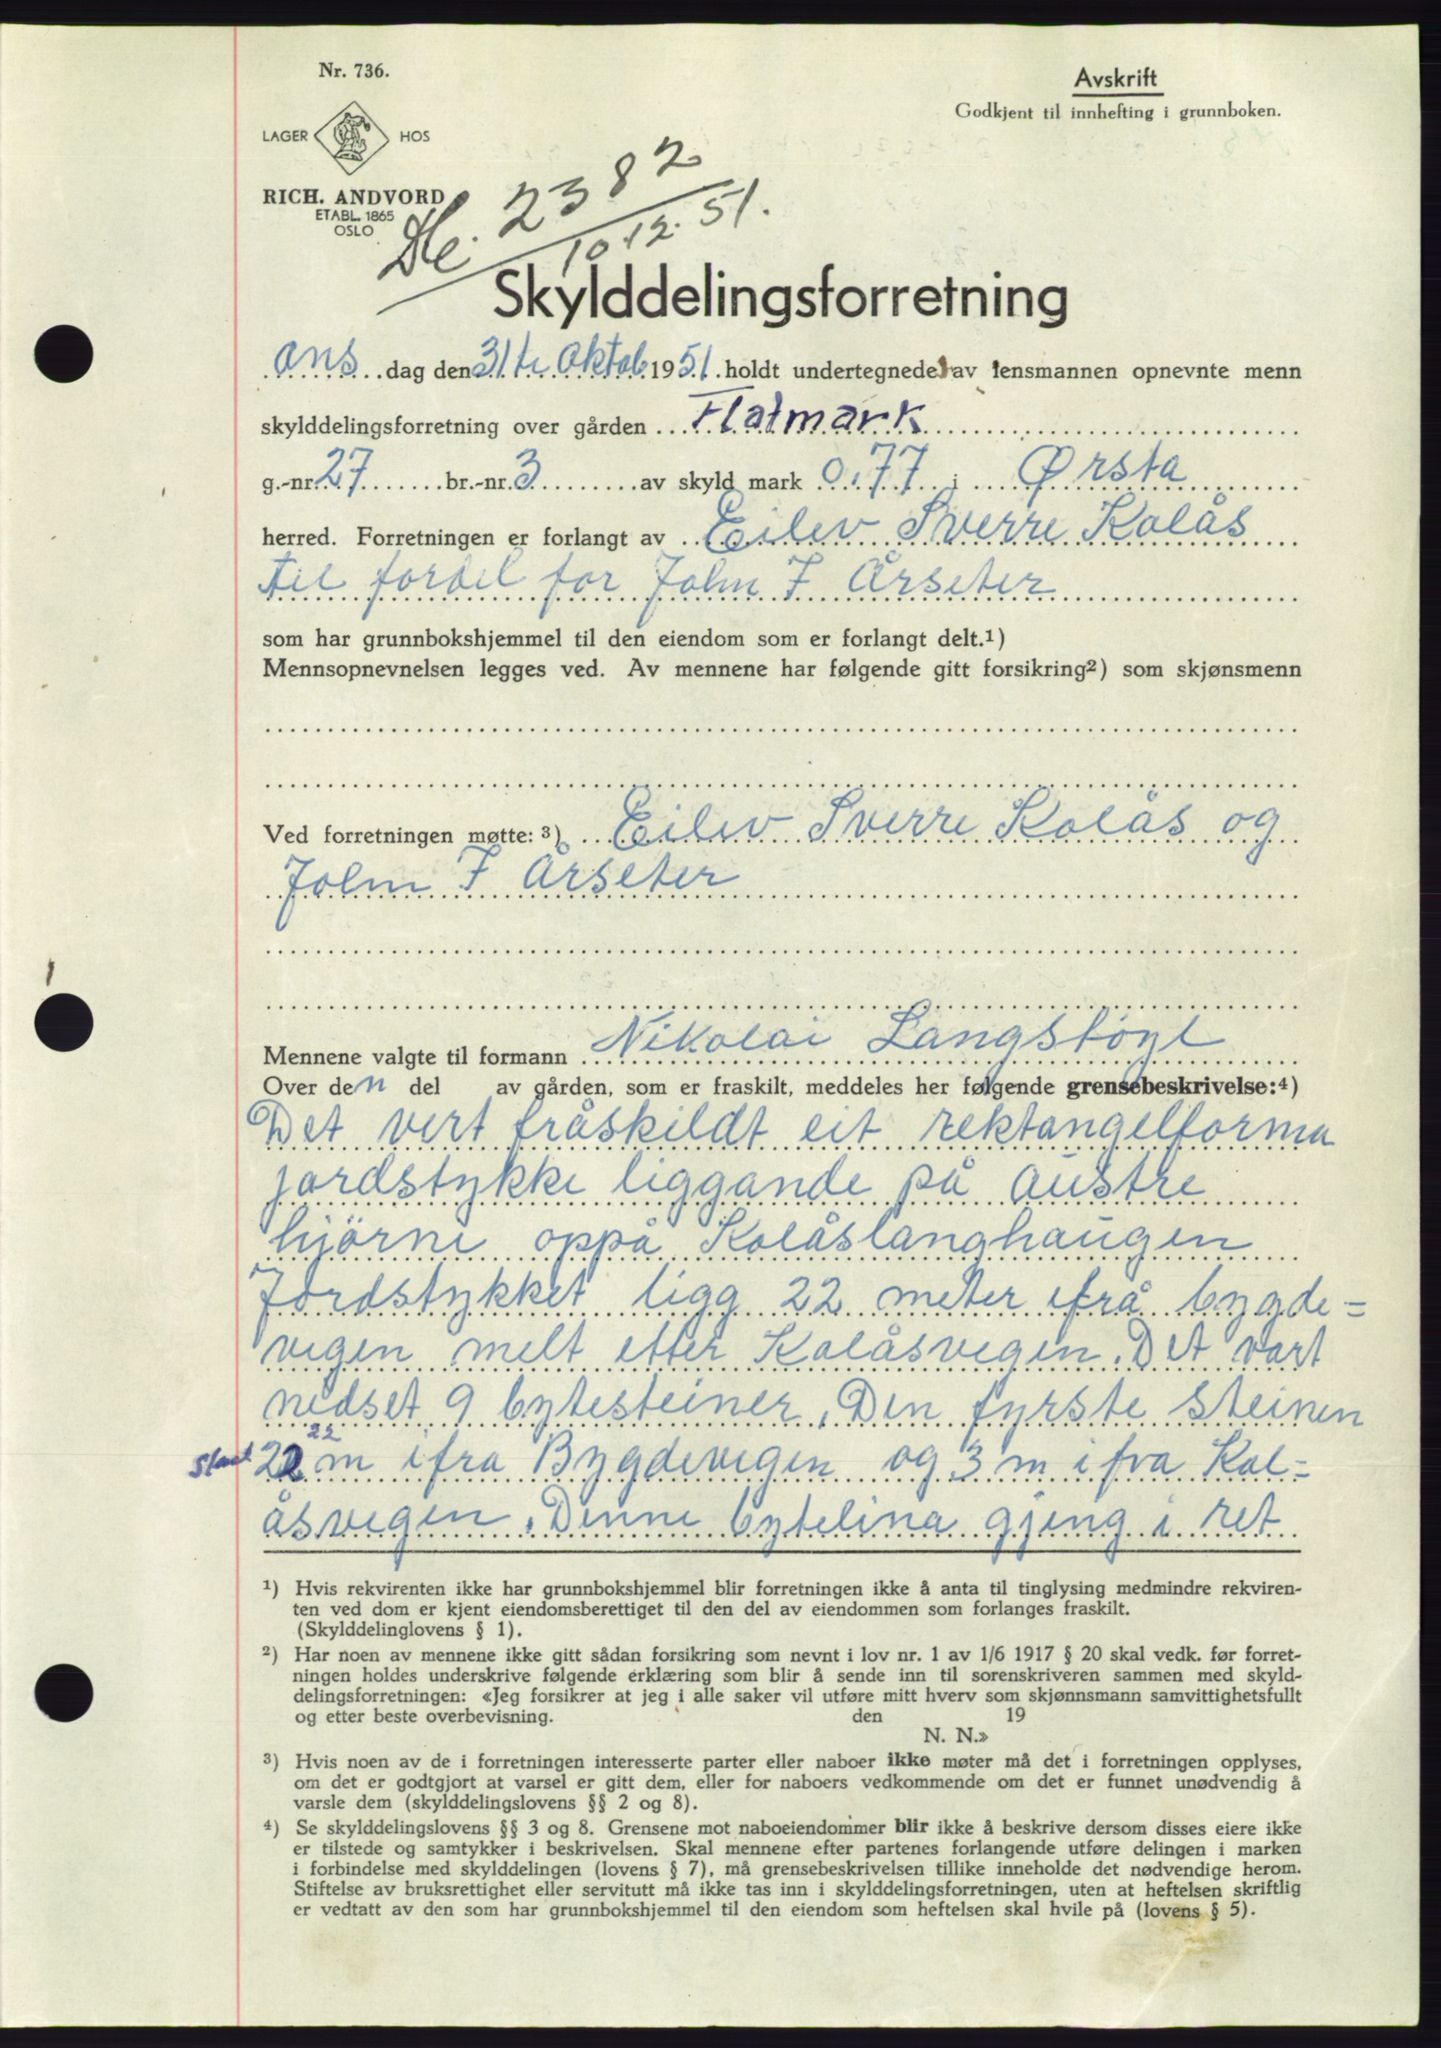 Nr. 736.
Avskrift
Godkjent til innhefting i grunnboken.
LAGER HOS
RICH. ANDVORD
ETABL. 1865
OSLO
2382
10.12.51.
Skylddelingsforretning
Ons dag den 31te Oktob. 1951. holdt undertegnede av lensmannen opnevnte menn
skylddelingsforretning over gården Flatmark
g.-nr. 27 br.-nr. 3 av skyld mark 0,77 i Ørsta
herred. Forretningen er forlangt av Eilev Sverre Kolås
til fordel for John F Årseter
som har grunnbokshjemmel til den eiendom som er forlangt delt.1)
Mennsopnevnelsen legges ved. Av mennene har følgende gitt forsikring2) som skjønsmenn
Ved forretningen møtte: 3) Eilev Sverre Kolås og
John F Årseter
Mennene valgte til formann Nikolai Langstøyl
Over den del av gården, som er fraskilt, meddeles her følgende grensebeskrivelse:4)
Det vert fråskildt eit rektangelforma
jordstykke liggande på austre
hjörne oppå Kolåslanghaugen
Jordstykket ligg 22 meter ifrå bygde=
vegen melt etter Kolåsvegen. Det vart
nedset 9 bytesteiner. Den fyrste steinen
22 22 m ifra Bygdevegen og 3 m ifra Kol=
åsvegen. Denne bytelina gjeng i ret
1) Hvis rekvirenten ikke har grunnbokshjemmel blir forretningen ikke å anta til tinglysing medmindre rekviren-
ten ved dom er kjent eiendomsberettiget til den del av eiendommen som forlanges fraskilt.
(Skylddelinglovens § 1).
2) Har noen av mennene ikke gitt sådan forsikring som nevnt i lov nr. 1 av 1/6 1917 § 20 skal vedk. før forret-
ningen holdes underskrive følgende erklæring som blir å sende inn til sorenskriveren sammen med skyld-
delingsforretningen: «Jeg forsikrer at jeg i alle saker vil utføre mitt hverv som skjønnsmann samvittighetsfullt
og etter beste overbevisning. den 19
N. N.»
3) Hvis noen av de i forretningen interesserte parter eller naboer ikke møter må det i forretningen opplyses,
om det er godtgjort at varsel er gitt dem, eller for naboers vedkommende om det er funnet unødvendig å
varsle dem (skylddelingslovens §§ 2 og 8).
4) Se skylddelingslovens §§ 3 og 8. Grensene mot naboeiendommer blir ikke å beskrive dersom disses eiere ikke
er tilstede og samtykker i beskrivelsen. Skal mennene efter partenes forlangende utføre delingen i marken
i forbindelse med skylddelingen (lovens § 7), må grensebeskrivelsen tillike inneholde det nødvendige herom.
Stiftelse av bruksrettighet eller servitutt må ikke tas inn i skylddelingsforretningen, uten at heftelsen skriftlig
er vedtatt av den som har grunnbokshjemmel til den eiendom som heftelsen skal hvile på (lovens § 5).